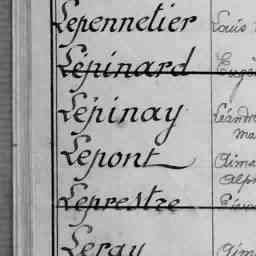 Lepennetier Louis
Lépinard Eugè
Lépinay Léandre
Ma
Lepont Aima
Alph
Leprestre
Leray Aim